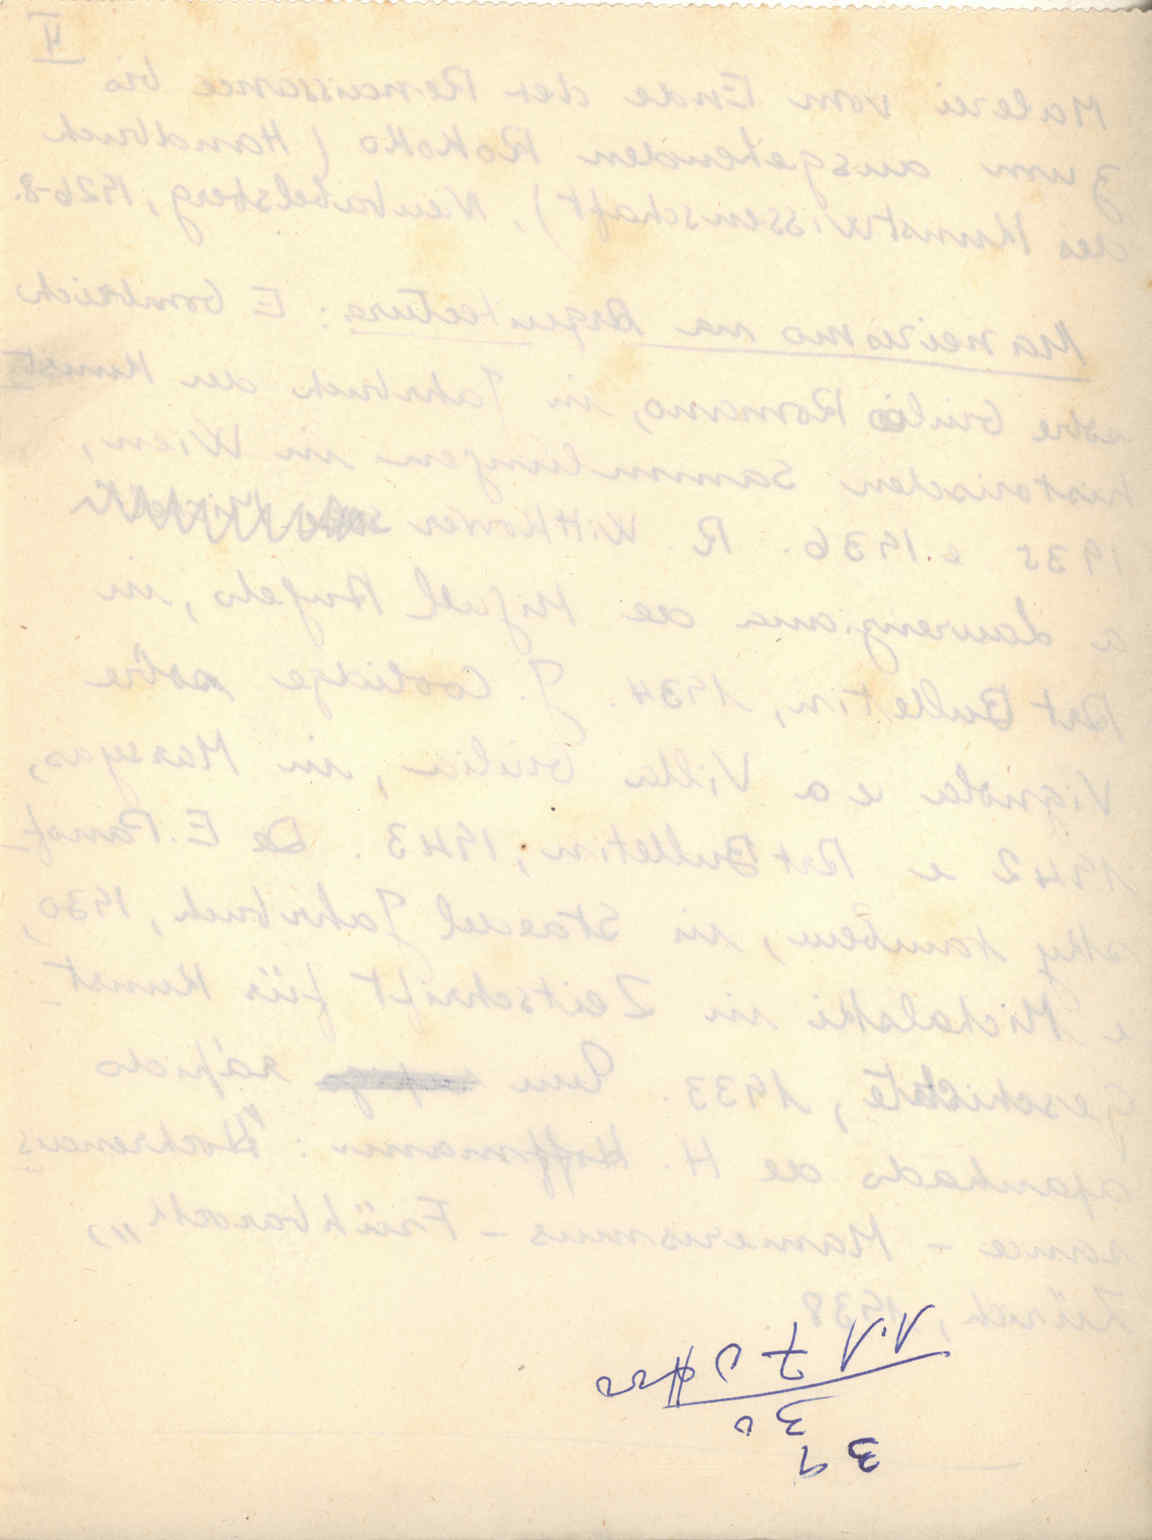 II
Malerei vom Ende der Renaissance bis
zum ausgehenden Rokoko (Handbuch
des Kunstwissenschaft), Neubabelsberg, 1926-8.
Maneirismo na Arquitectura: E Gombrich
sôbre Giulio Romano, in Jahrbuch der Kunst
historischen Sammlungen in Wien,
1935 e 1936. R. Wittkower
a Laurenziana de Miguel Angelo, in
Art Bulletin, 1934. J. Coolidge sôbre
Vignola e a Villa Giulia, in Marsyas,
1942 e Art Bulletin, 1943. De E. Panof-
sky tambem, in Staedel Jahrbuch, 1930,
e Michalski in Zeitschrift für Kunst-
geschichte, 1933. Um rápido
apanhado de H. Hoffmann: "Hochrenais
sance - Manierismus - Frühbarock",
Zürich, 1938.
39
30
1.170$00